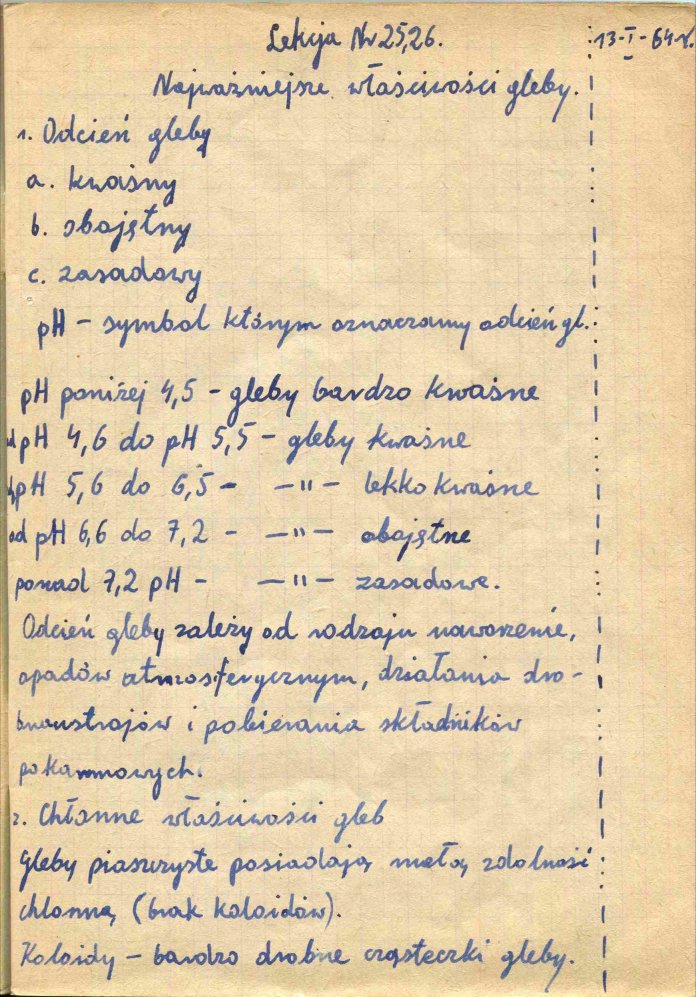 Lekcja Nr 25,26. 13-I-64r.
Najważniejsze właściwości gleby.
1. Odcień gleby
a. kwaśny
b. obojętny
c. zasadowy
pH - symbol którym oznaczamy odcień gl.
pH poniżej 4,5 - gleby bardzo kwaśne
od pH 4,6 do pH 5,5 - gleby kwaśne
od pH 5,6 do 6,5 - —"— lekko kwaśne
od pH 6,6 do 7,2 - —"— obojętne
ponad 7,2 pH - —"— zasadowe.
Odcień gleby zależy od rodzaju nawożenie,
opadów atmosferycznym, działania dro-
bnoustrojów i pobierania składników
pokarmowych.
2. Chłonne właściwości gleb
Gleby piaszczyste posiadają małą zdolność
chłonną (brak koloidów).
Koloidy - bardzo drobne cząsteczki gleby.